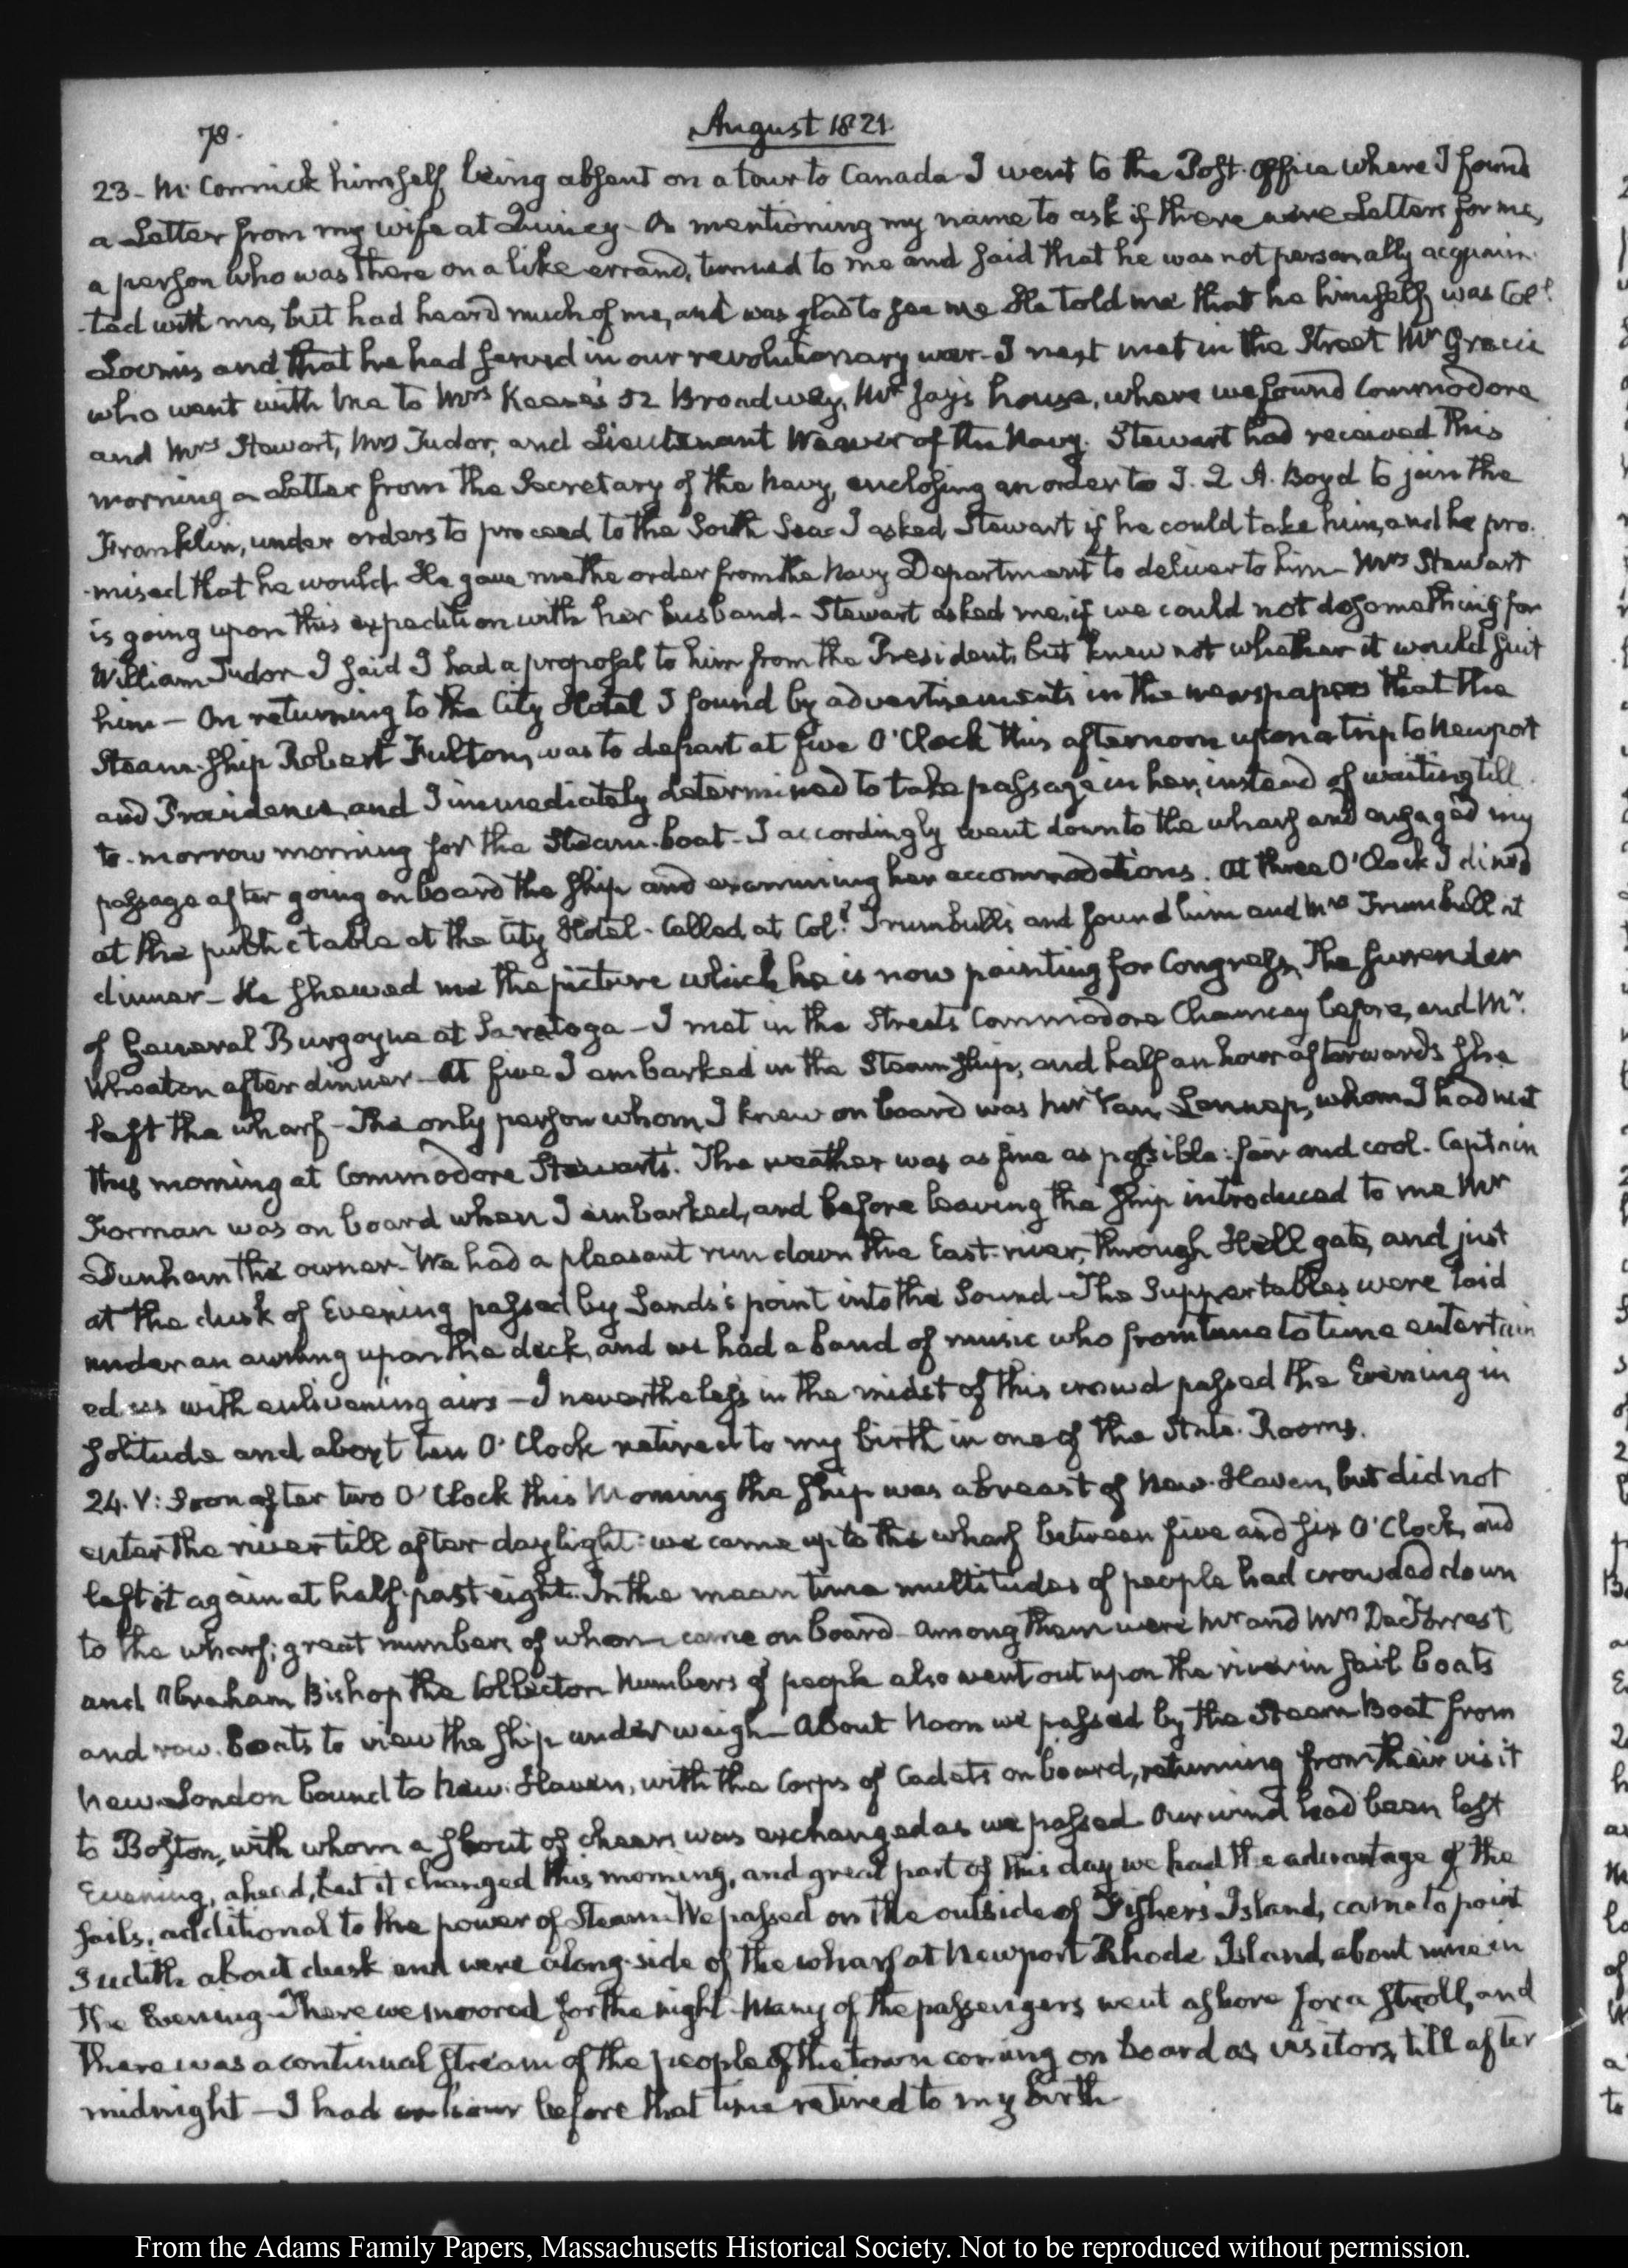 78.
August 1821.
23 - McCormick himself being absent on a tour to Canada - I went to the Post-Office where I found
a Letter from my wife at Quincy - On mentioning my name to ask if there were Letters for me,
a person who was there on a like errand, turned to me and said that he was not personally acquain-
-ted with me, but had heard much of me, and was glad to see me - He told me that he himself was Coll.
Loomis and that he had served in our revolutionary war - I next met in the Street Mr Gracie
who went with me to Mrs Keese's 52 Broadway, Mr Jay's house, where we found Commodore
and Mrs Stewart, Mrs Tudor, and Lieutenant Weaver of the Navy. Stewart had received this
morning a Letter from the Secretary of the Navy, enclosing an order to J. Q. A. Boyd to join the
Franklin, under orders to proceed to the South Sea - I asked Stewart if he could take him, and he pro-
-mised that he would. He gave me the order from the Navy Department to deliver to him - Mrs Stewart
is going upon this expedition with her husband - Stewart asked me, if we could not do something for
William Tudor - I said I had a proposal to him from the President, but knew not whether it would suit
him - On returning to the City Hotel I found by advertisements in the newspapers that the
Steam-ship Robert Fulton, was to depart at five O'Clock this afternoon upon a trip to Newport
and Providence, and I immediately determined to take passage in her, instead of waiting till
to-morrow morning for the Steam-boat - I accordingly went down to the wharf and engaged my
passage after going on board the ship and examining her accommodations. At three O'Clock I dined
at the public table at the City Hotel - Called at Coll. Trumbull's and found him and Mrs Trumbull at
dinner - He shewed me the picture which he is now painting for Congress, The Surrender
of General Burgoyne at Saratoga - I met in the Streets Commodore Chauncey before, and Mr.
Wheaton after dinner - At five I embarked in the Steam ship, and half an hour afterwards she
left the wharf - The only person whom I knew on board was Mr Van Lennep, whom I had met
this morning at Commodore Stewart's. The weather was as fine as possible: fair and cool. Captain
Forman was on board when I embarked, and before leaving the ship introduced to me Mr
Dunham the owner - We had a pleasant run down the East-river, through Hell gate, and just
at the dusk of Evening passed by Sands's point into the Sound - The Supper tables were laid
under an awning upon the deck, and we had a band of music who from time to time entertain
ed us with enlivening airs - I nevertheless in the midst of this crowd passed the Evening in
solitude and about ten O'Clock retired to my birth in one of the State-Rooms.
24. V: Soon after two O'Clock this Morning the ship was abreast of New-Haven, but did not
enter the river till after daylight: we came up to the wharf between five and six O'Clock, and
left it again at half-past eight. In the mean time multitudes of people had crowded down
to the wharf; great numbers of whom came on board - Among them were Mr and Mrs DeForrest
and Abraham Bishop the Collector - Numbers of people also went out upon the river in sail boats
and row-boats to view the ship under weigh - About Noon we passed by the Steam Boat from
New-London bound to New-Haven, with the Corps of Cadets on board, returning from their visit
to Boston, with whom a shout of cheers was exchanged as we passed - Our wind had been last
Evening, ahead, but it changed this morning, and great part of this day we had the advantage of the
sails, additional to the power of Steam - We passed on the outside of Fisher's Island, came to point
Judith about dusk and were along-side of the wharf at Newport Rhode Island, about nine in
the Evening - There we moored for the night - Many of the passengers went ashore for a stroll, and
there was a continual stream of the people of the town coming on board as visitors, till after
midnight - I had an hour before that time retired to my birth
From the Adams Family Papers, Massachusetts Historical Society. Not to be reproduced without permission.